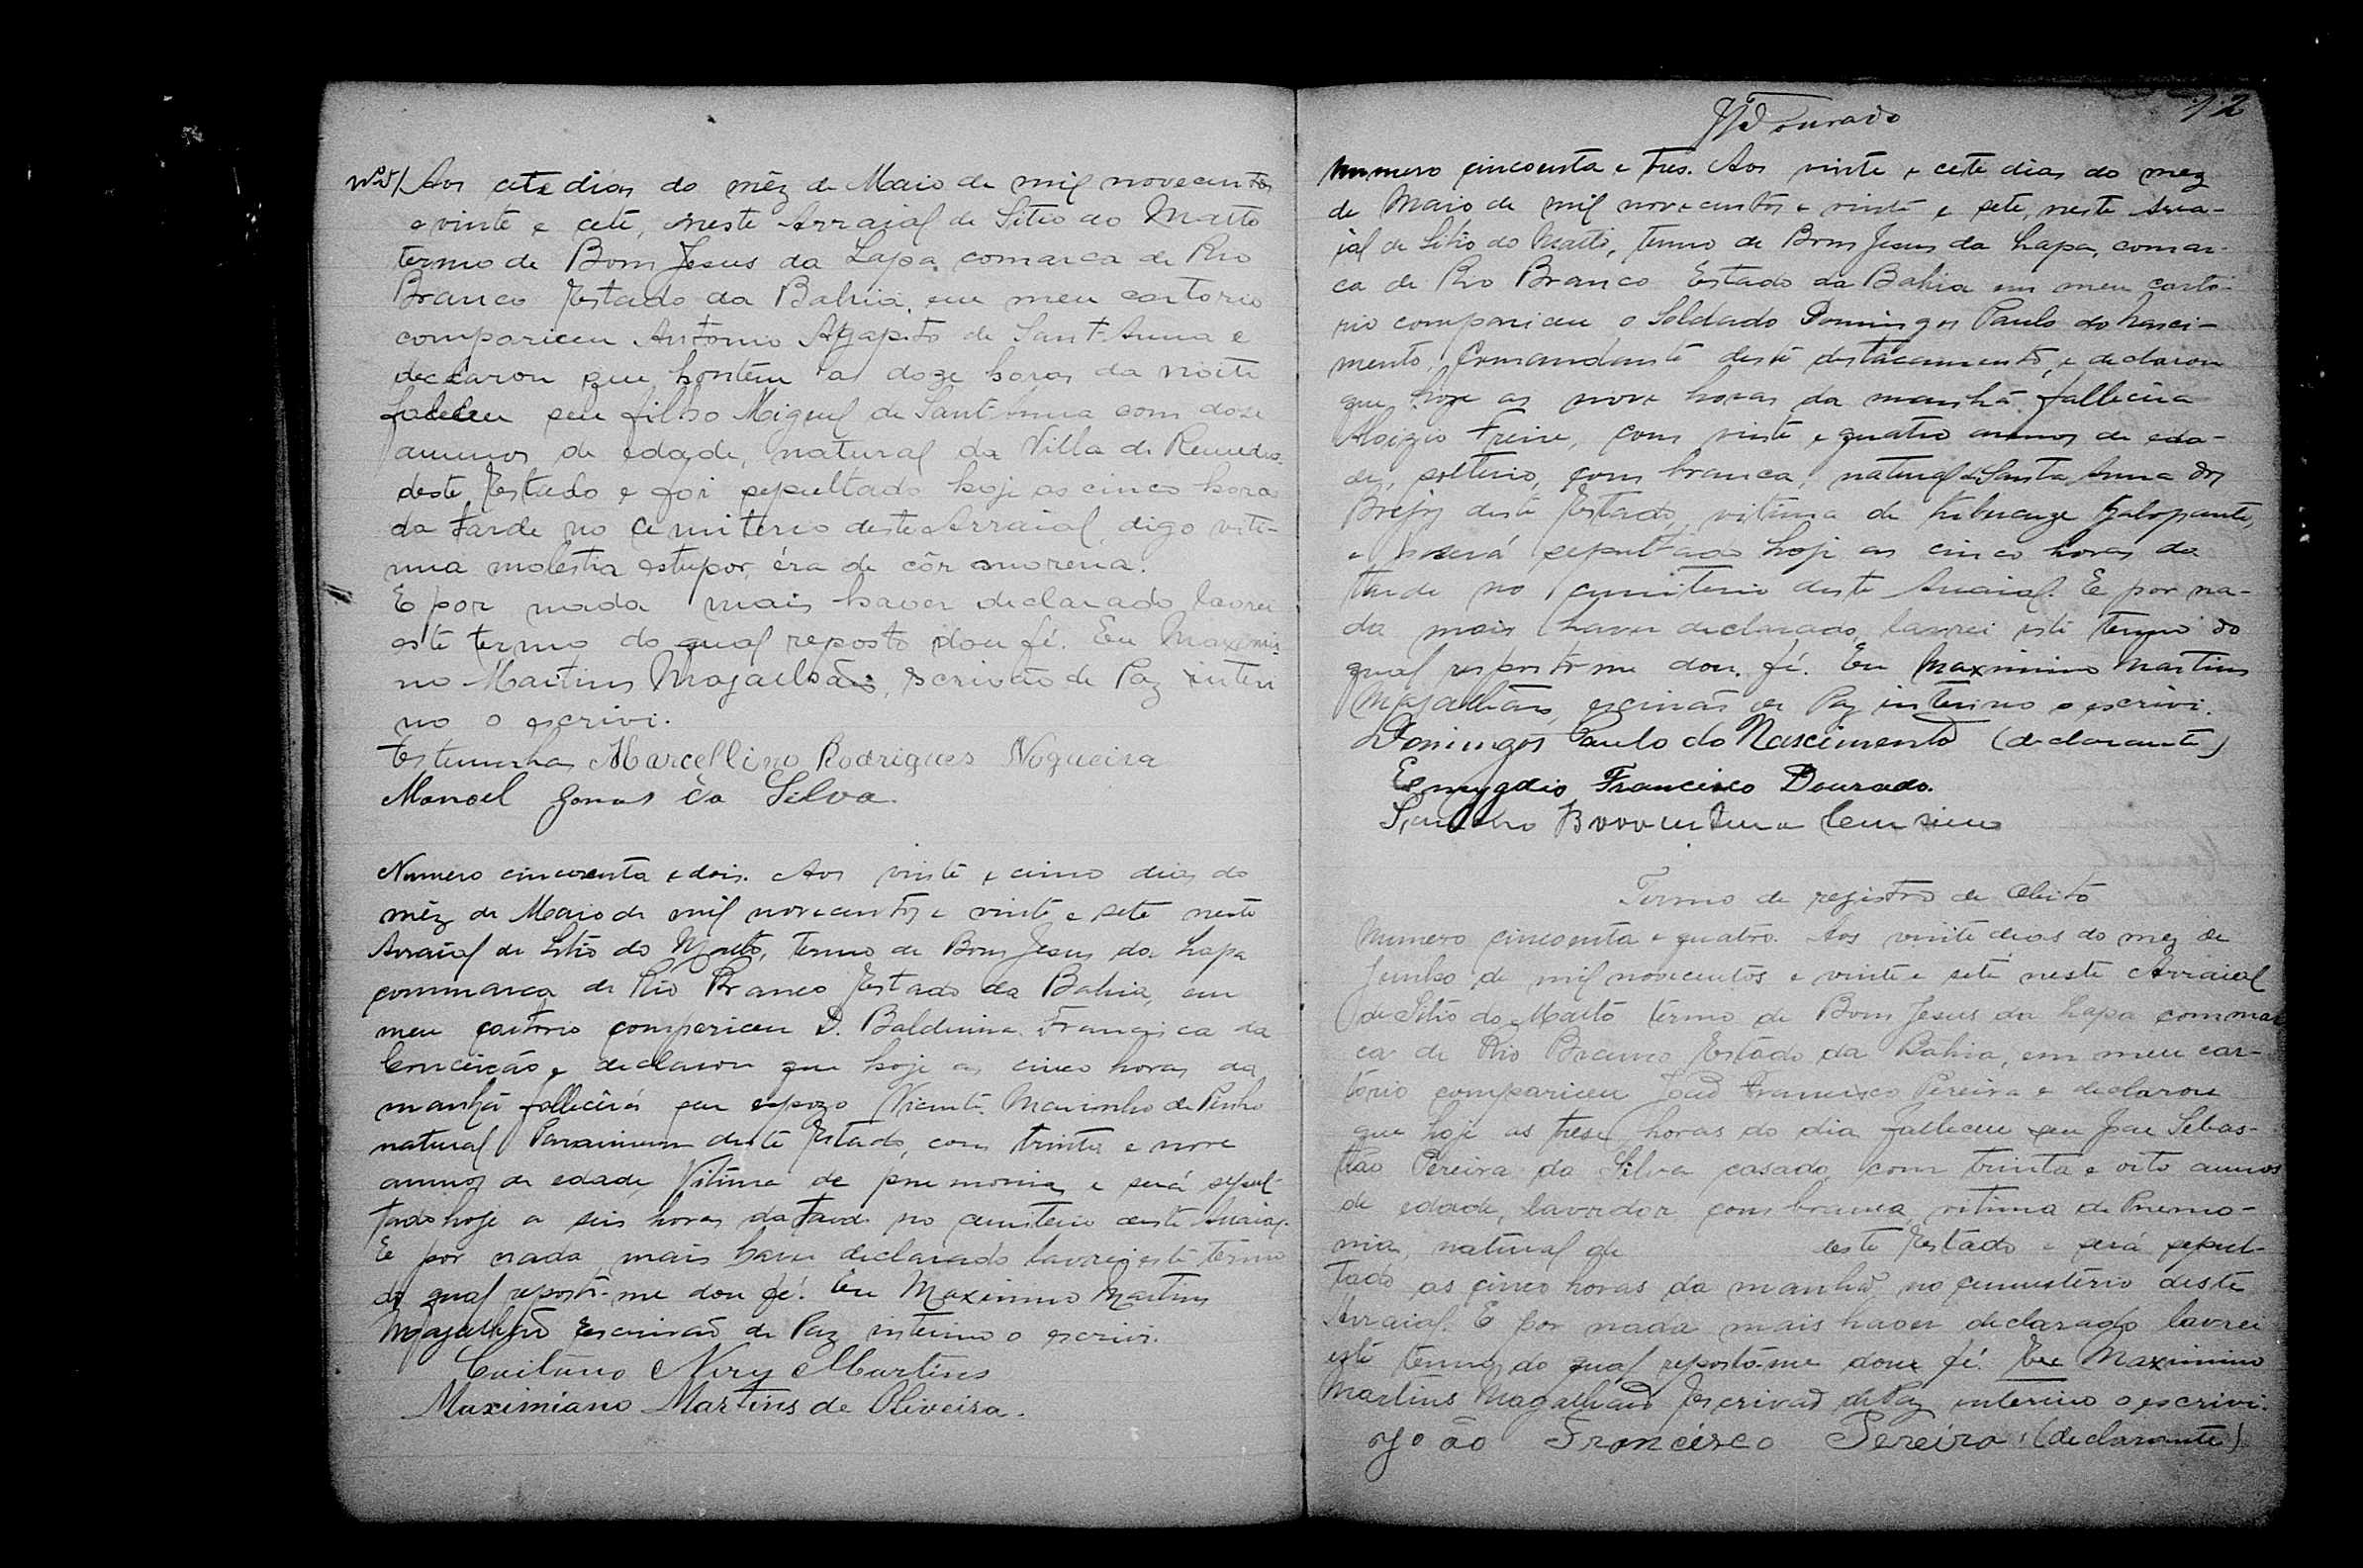 Aos cete dias do mêz de Maio de mil novecentos
e vinte e cete, neste Arraial de Sitio do Matto
termo de Bom Jesus da Lapa, comarca de Rio
Branco Estado da Bahia, em meu cartorio
compariceu Antonio Agapito de Sant'Anna e
declarou que hontem as doze horas da noite
faleceu seu filho Miguel de Sant'Anna com doze
annos de edade, natural da Villa de Remedios
deste Estado e foi sepultado hoje as cinco horas
da tarde no cemiterio deste Arraial, digo viti-
ma molestia estupor, éra de côr morena.
E por nada mais haver declarado lavrei
este termo do qual reposto dou fé. Eu Maximi-
no Martins Magalhães, Escrivão de Paz interi
no o escrivi.
Testemunhas Marcellino Rodrigues Nogueira
Manoel Gomes da Silva.
Numero cincoenta e dois. Aos vinte e cinco dias do
mêz de Maio de mil novecentos e vinte e sete neste
Arraial de Sitio do Matto, termo de Bom Jesus da Lapa
commarca de Rio Branco Estado da Bahia, em
meu cartorio compariceu D. Balduina Francisca da
Conceição e declarou que hoje as cinco horas da
manhã fallecêra seu espozo Vicente Marinho de Pinho
natural deste Estado, com trinta e nove
annos de edade, Vitima de pneumonia, e será sepul-
tado hoje as seis horas da tarde no cemiterio deste Arraial.
E por nada mais haver declarado lavrei este termo
do qual reposto-me dou fé. Eu Maximino Martins
Magalhão Escrivão de Paz interino o escrivi.
Caitano Nery Martins
Maximiano Martins de Oliveira.
Dourado
12
Numero cincoenta e tres. Aos vinte e cete dias do mez
de Maio de mil novecentos e vinte e sete, neste Arra-
ial de Sitio do Matto, termo de Bom Jesus da Lapa, comar-
ca de Rio Branco Estado da Bahia em meu carto-
rio compariceu o Soldado Domingos Paulo do Nasci-
mento, Comandante deste destacamento, e declarou
que hoje as nove horas da manhã fallecêra
Aloizio Freire, com vinte e quatro annos de eda-
de, solteiro, com branca, natural de Santa Anna dos
Brejos deste Estado, vitima de tuberculoze galopante,
e será sepultado hoje as cinco horas da
tarde no cemiterio deste Arraial. E por na-
da mais haver declarado, lavrei este termo do
qual reposto-me dou fé. Eu Maximino Martins
Magalhães, escrivão de Paz interino o escrivi.
Domingos Paulo do Nascimento (declarante)
Esmygdio Francisco Dourado.
Termo de registro de Obito
Numero cincoenta e quatro. Aos vinte dias do mez de
Junho de mil novecentos e vinte e sete neste Arraial
de Sitio do Matto termo de Bom Jesus da Lapa commar
ca de Rio Branco Estado da Bahia, em meu car-
torio compariceu João Francisco Pereira e declarou
que hoje as trese horas do dia falleceu seu pae Sebas-
tião Pereira da Silva casado, com trinta e oito annos
de edade, lavrador com branca, vitima de Pnemo-
nia, natural de este Estado e será sepul-
tado as cinco horas da manhã no cemiterio deste
Arraial. E por nada mais haver declarado lavrei
este termo do qual reposto-me dou fé. Eu Maximino
Martins Magalhães Escrivão de Paz interino o escrivi.
João Francisco Pereira (declarante)